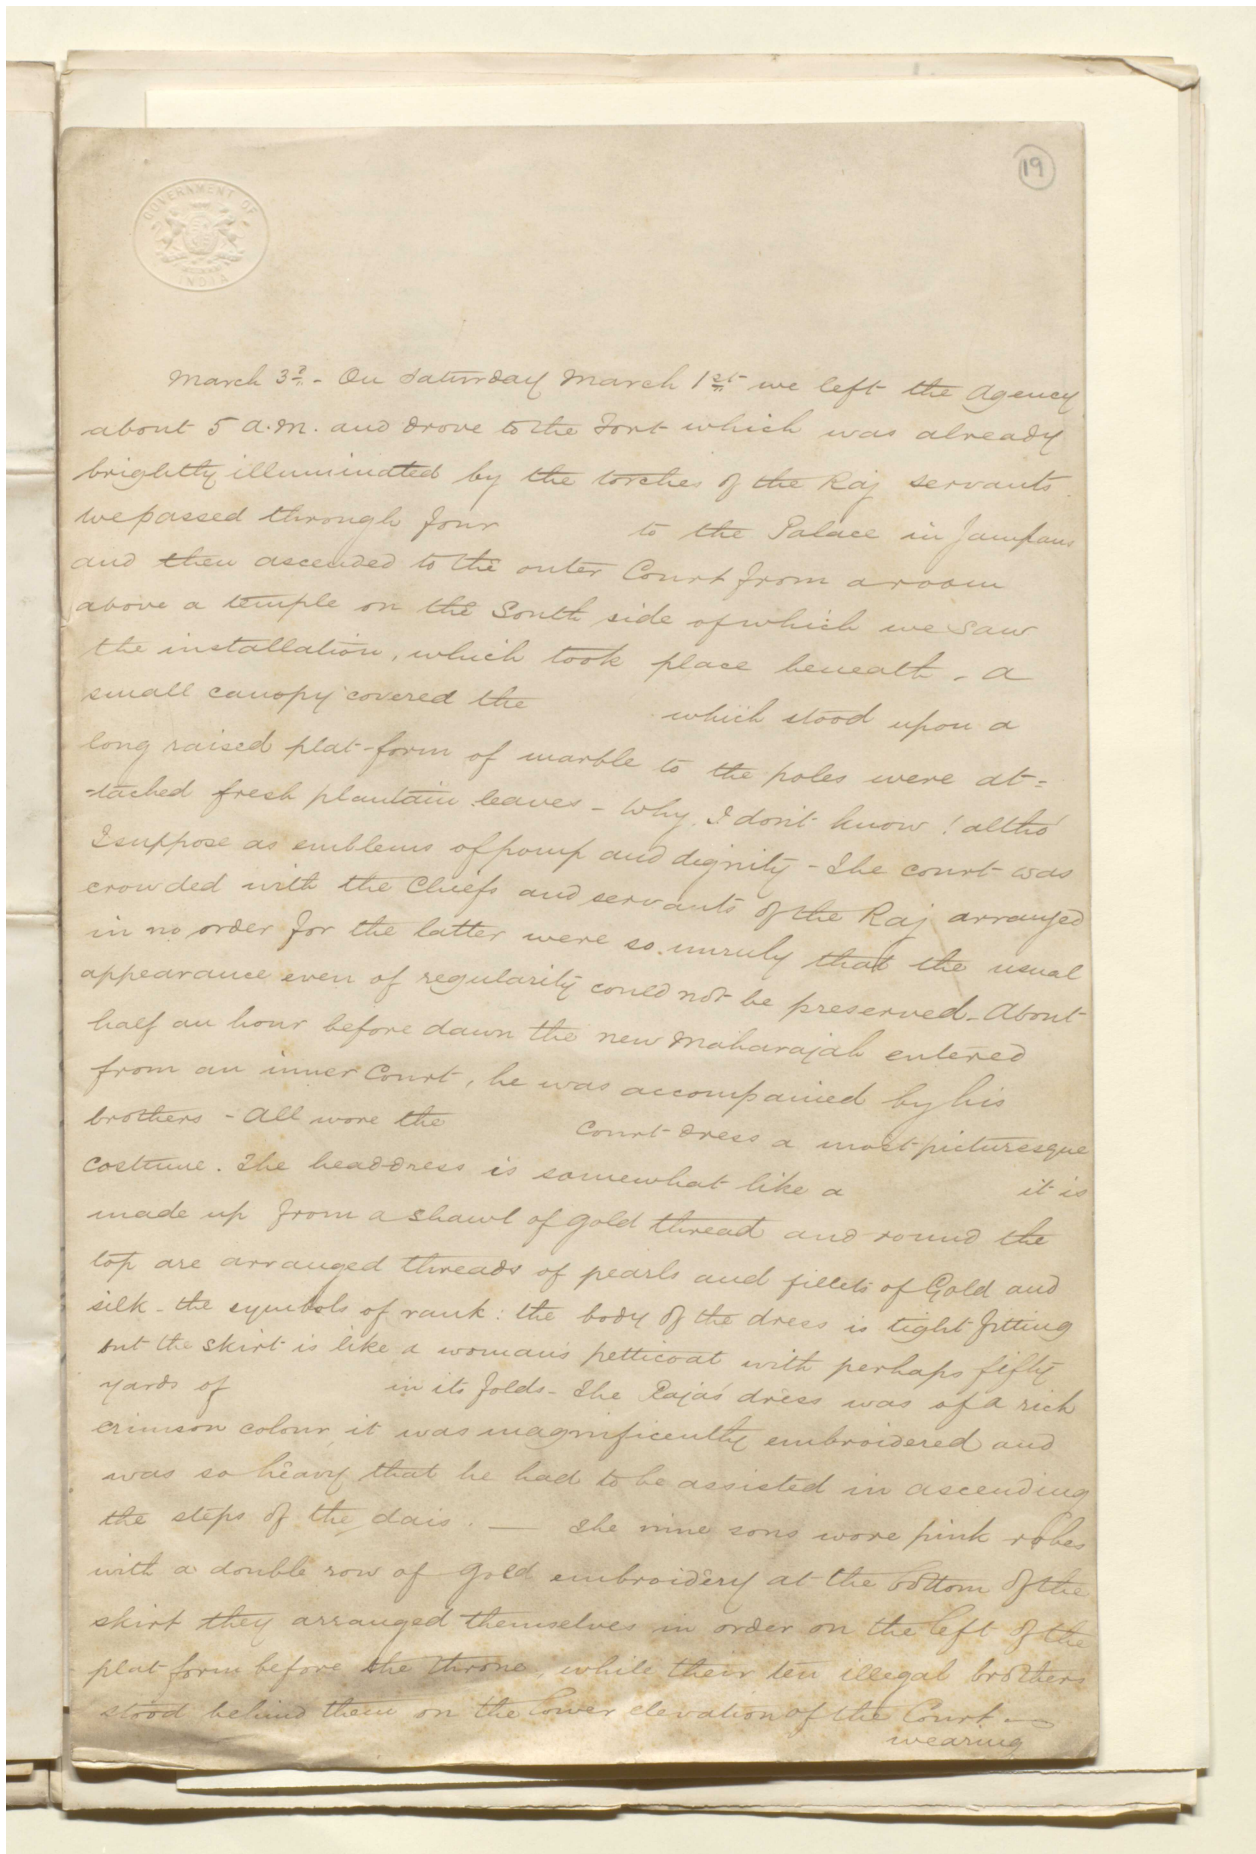 19
GOVERNMENT OF
INDIA
March 3rd - On Saturday March 1st we left the Agency
about 5 a.m. and drove to the Fort which was already
brightly illuminated by the torches of the Raj servants.
We passed through four to the Palace in Jampans
and then ascended to the outer Court from a room
above a temple on the South side of which we saw
the installation, which took place beneath. A
small canopy covered the which stood upon a
long raised plat-form of marble to the poles were at=
-tached fresh plantain leaves - Why, I don't know! altho'
I suppose as emblems of pomp and dignity - The court was
crowded with the Chiefs and servants of the Raj arranged
in no order for the latter were so unruly that the usual
appearance even of regularity could not be preserved. About
half an hour before dawn the new Maharajah entered
from an inner Court, he was accompanied by his
brothers - All wore the Court dress a most picturesque
costume. The head-dress is somewhat like a it is
made up from a shawl of gold thread and round the
top are arranged threads of pearls and fillets of Gold and
silk - the symbols of rank: the body of the dress is tight fitting
but the skirt is like a womans petticoat with perhaps fifty
yards of in its folds - The Raja's dress was of a rich
crimson colour, it was magnificently embroidered and
was so heavy that he had to be assisted in ascending
the steps of the dais. — The nine sons wore pink robes
with a double row of gold embroidery at the bottom of the
skirt they arranged themselves in order on the left of the
plat form before the throne, while their ten illegal brothers
stood behind them on the lower elevation of the Court —
wearing